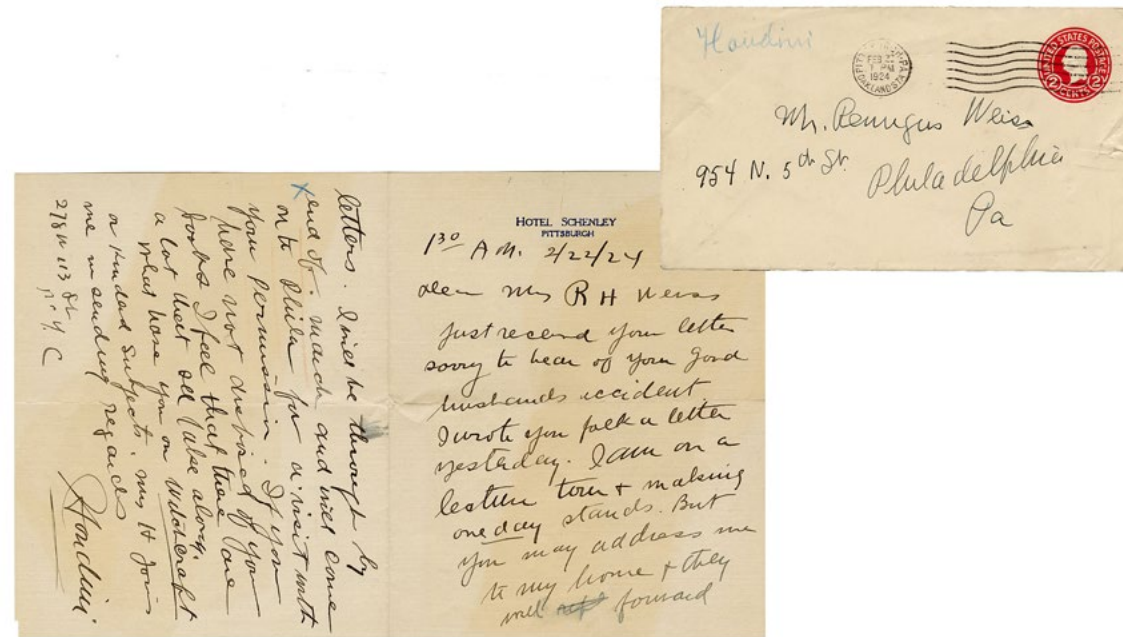 Houdini
PITTSBURGH, PA
FEB 22
1 PM
1924
OAKLAND STA.
UNITED STATES POSTAGE
2 CENTS 2
Mr. Remigius Weiss
954 N. 5th St.
Philadelphia
Pa
HOTEL SCHENLEY
PITTSBURGH
1 30 A.M. 2/22/24
Dear Mrs R H Weiss
Just received your letter
sorry to hear of your good
husbands accident
I wrote you folk a letter
yesterday. I am on a
lecture tour + making
one day stands. But
you may address me
to my home + they
will forward
letters. I will be through by
x end of march and will come
on to Phila for a visit with
your permission. If you
have not disposed of your
books I feel that there are
a lot that I'll take along.
What have you on Witchcraft
or Kindred Subjects. Mrs H joins
me in sending regards
Houdini
278 W 113 St
N.Y.C